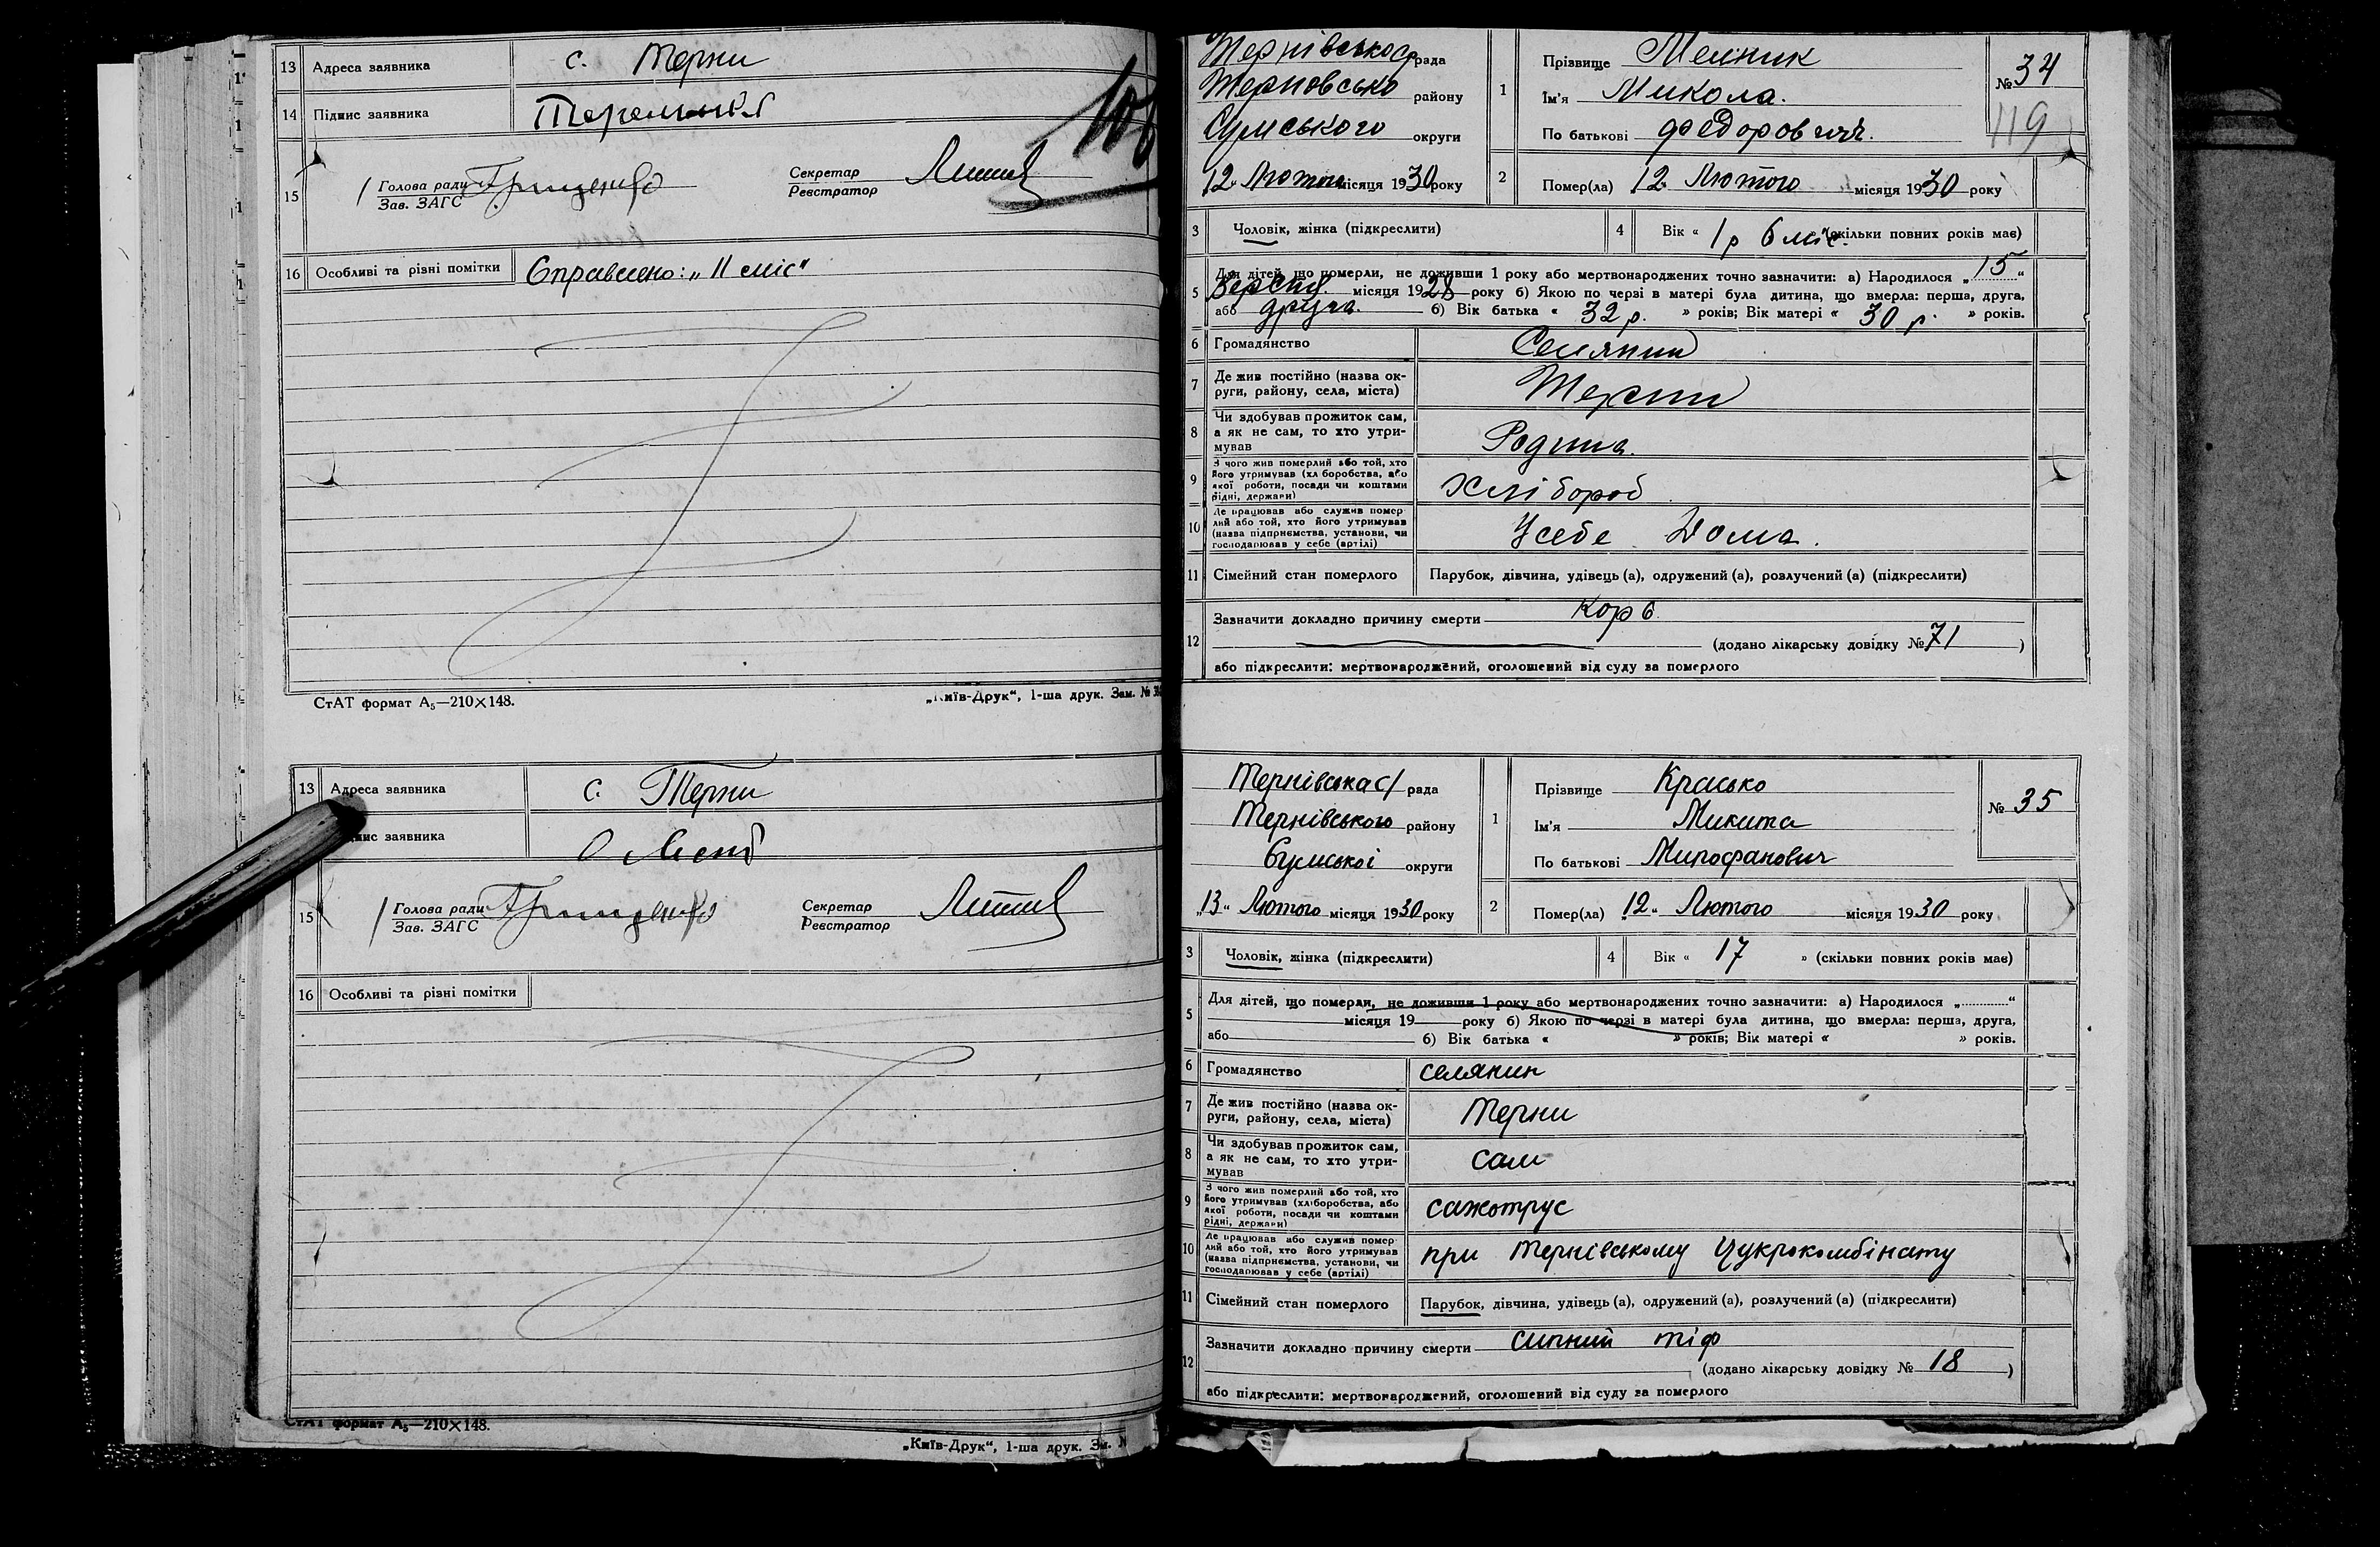 13 Адреса заявника с. Терни
14 Підпис заявника
106
15 Голова ради Грищенко Секретар
Зав. ЗАГС Реєстратор
16 Особливі та різні помітки Справлено: „11 міс"
СтАТ формат А₅—210×148. „Київ-Друк“, 1-ша друк. Зам. №
13 Адреса заявника с. Терни
підпис заявника
15 Голова ради Грищенко Секретар
Зав. ЗАГС Реєстратор
16 Особливі та різні помітки
СтАТ формат А₅—210×148.
„Київ-Друк“, 1-ша друк.
рада
району
Сумського округи
12 Лютого місяця 1930 року
1 Прізвище Мелник
Ім'я Микола.
По батькові Федорович.
№ 34
119
2 Помер(ла) 12 Лютого місяця 1930 року
3 Чоловік, жінка (підкреслити) 4 Вік « 1 р 6 міс. (скільки повних років має)
5 Для дітей, що померли, не доживши 1 року або мертвонароджених точно зазначити: а) Народилося „15“
місяця 1928 року б) Якою по черзі в матері була дитина, що вмерла: перша, друга,
або друга. б) Вік батька « 32 р. » років; Вік матері « 30 р. » років.
6 Громадянство Селянин
7 Де жив постійно (назва ок-
руги, району, села, міста) Терни
8 Чи здобував прожиток сам,
а як не сам, то хто утри-
мував Родина.
9 З чого жив померлий або той, хто
його утримував (хліборобства, або
якої роботи, посади чи коштами
рідні, держави) Хлібороб
10 Де працював або служив помер-
лий або той, хто його утримував
(назва підприємства, установи, чи
господарював у себе (артілі) Усебе Дома.
11 Сімейний стан померлого Парубок, дівчина, удівець (а), одружений (а), розлучений (а) (підкреслити)
12 Зазначити докладно причину смерти Кор
(додано лікарську довідку № 71 )
або підкреслити: мертвонароджений, оголошений від суду за померлого
Тернівська с/ рада
Тернівського району
Сумської округи
„13“ Лютого місяця 1930 року
1 Прізвище Красько
Ім'я Микита
По батькові Митрофанович
№ 35
2 Помер(ла) „12“ Лютого місяця 1930 року
3 Чоловік, жінка (підкреслити) 4 Вік « 17 » (скільки повних років має)
5 Для дітей, що померли, не доживши 1 року або мертвонароджених точно зазначити: а) Народилося „ “
місяця 19 року б) Якою по черзі в матері була дитина, що вмерла: перша, друга,
або б) Вік батька « » років; Вік матері « » років.
6 Громадянство селянин
7 Де жив постійно (назва ок-
руги, району, села, міста) Терни
8 Чи здобував прожиток сам,
а як не сам, то хто утри-
мував сам
9 З чого жив померлий або той, хто
його утримував (хліборобства, або
якої роботи, посади чи коштами
рідні, держави) сажотрус
10 Де працював або служив помер-
лий або той, хто його утримував
(назва підприємства, установи, чи
господарював у себе (артілі) при Тернівському Цукрокомбінату
11 Сімейний стан померлого Парубок, дівчина, удівець (а), одружений (а), розлучений (а) (підкреслити)
12 Зазначити докладно причину смерти сипний тіф
(додано лікарську довідку № 18 )
або підкреслити: мертвонароджений, оголошений від суду за померлого